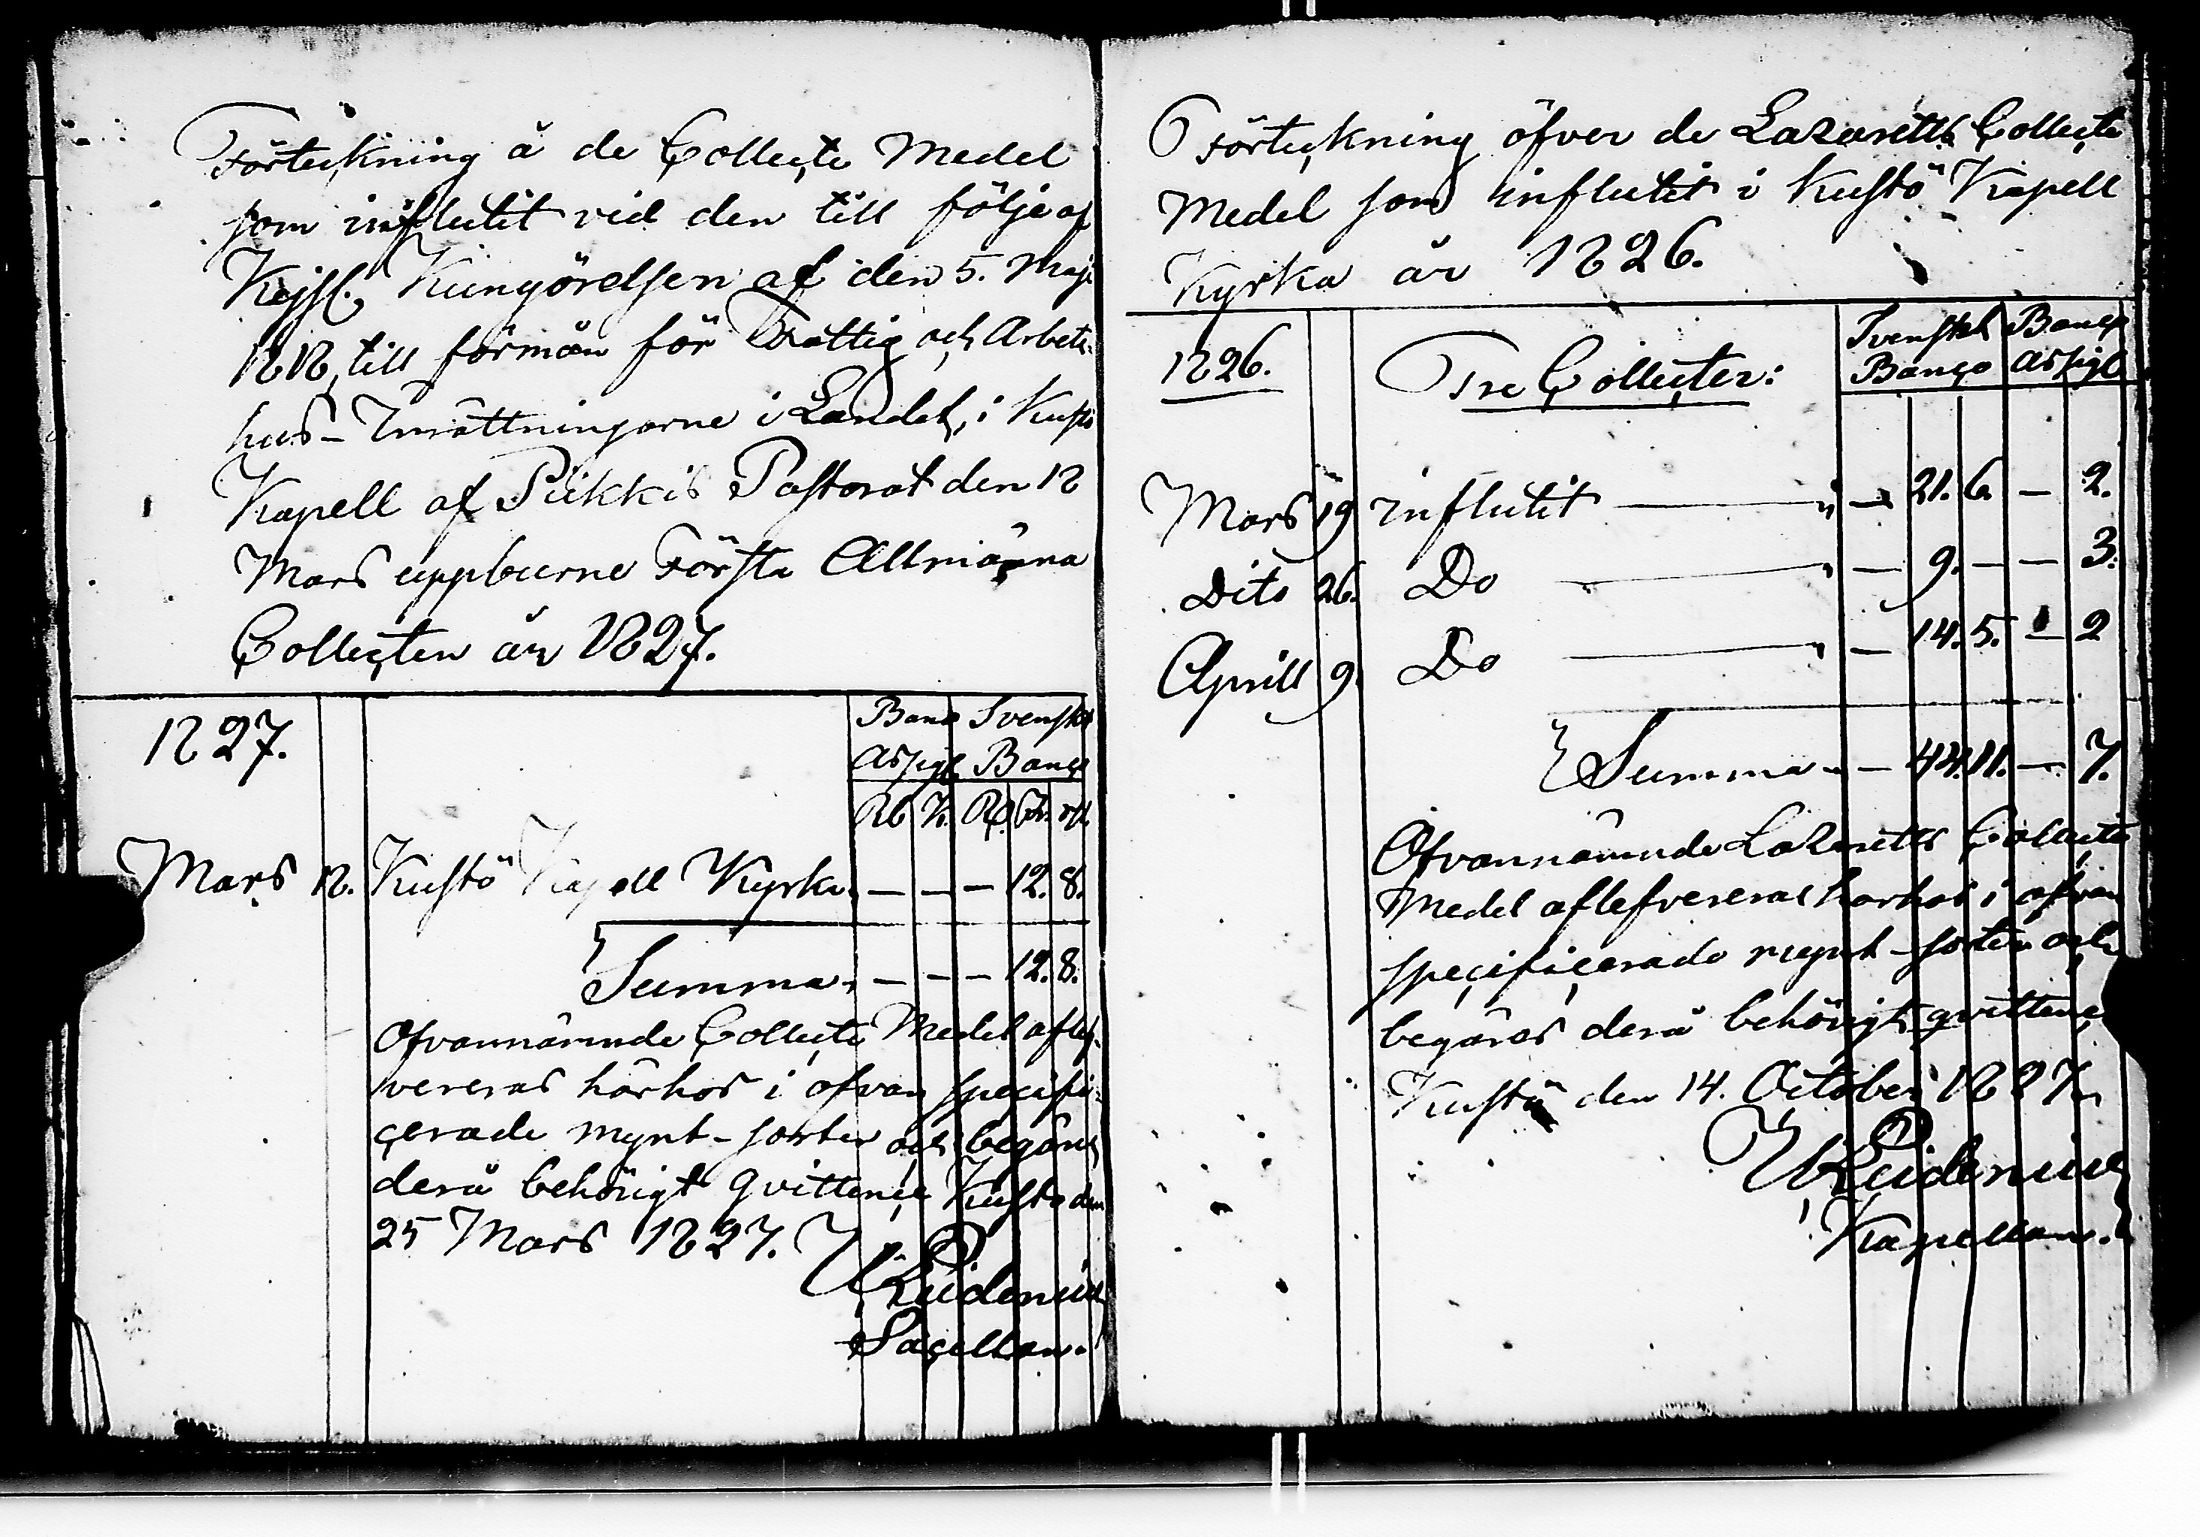 Förteckning å de Collecte Medel
som influtit vid den till följe af
Kejsl. Kungörelsen af den 5. Maji
1818, till förmån för Fattig och Arbets-
hus-Inrättningarne i Landet, i Kustö
Kapell af Piikkis Pastorat den 18
Mars uppburne Första Allmänna
Collecten år 1827.
1827.
Banco Assigt Svenskt Banco
Rb K. Rd. sk. rst.
Mars 18. Kustö Kapell Kyrka. — — — 12. 8.
Summa. — — — 12. 8.
Ofvannämnde Collecte Medel aflef-
vereras härhos i ofvan specifi-
cerade mynt-sorter och begäres
derå behörigt qvittence Kustö den
25 Mars 1827.
Reidenius
Sacellan.
Förteckning öfver de Lazaretts Collecte
Medel som influtit i Kustö Kapell
Kyrka år 1826.
1826. Tre Collecter: Svenskt Banco Banco Assigt
Mars 19 influtit — — 21. 6. — 2.
Dito 26. Do — — 9. — — 3.
Aprill 9. Do — — 14. 5. — 2
Summa — 44. 11. — 7.
Ofvannämnde Lazaretts Collecte
Medel aflefvereras härhos i ofvan
specificerade mynt-sorter och
begäres derå behörigt qvittence
Kustö den 14. October 1827.
Reidenius
Kapellan.